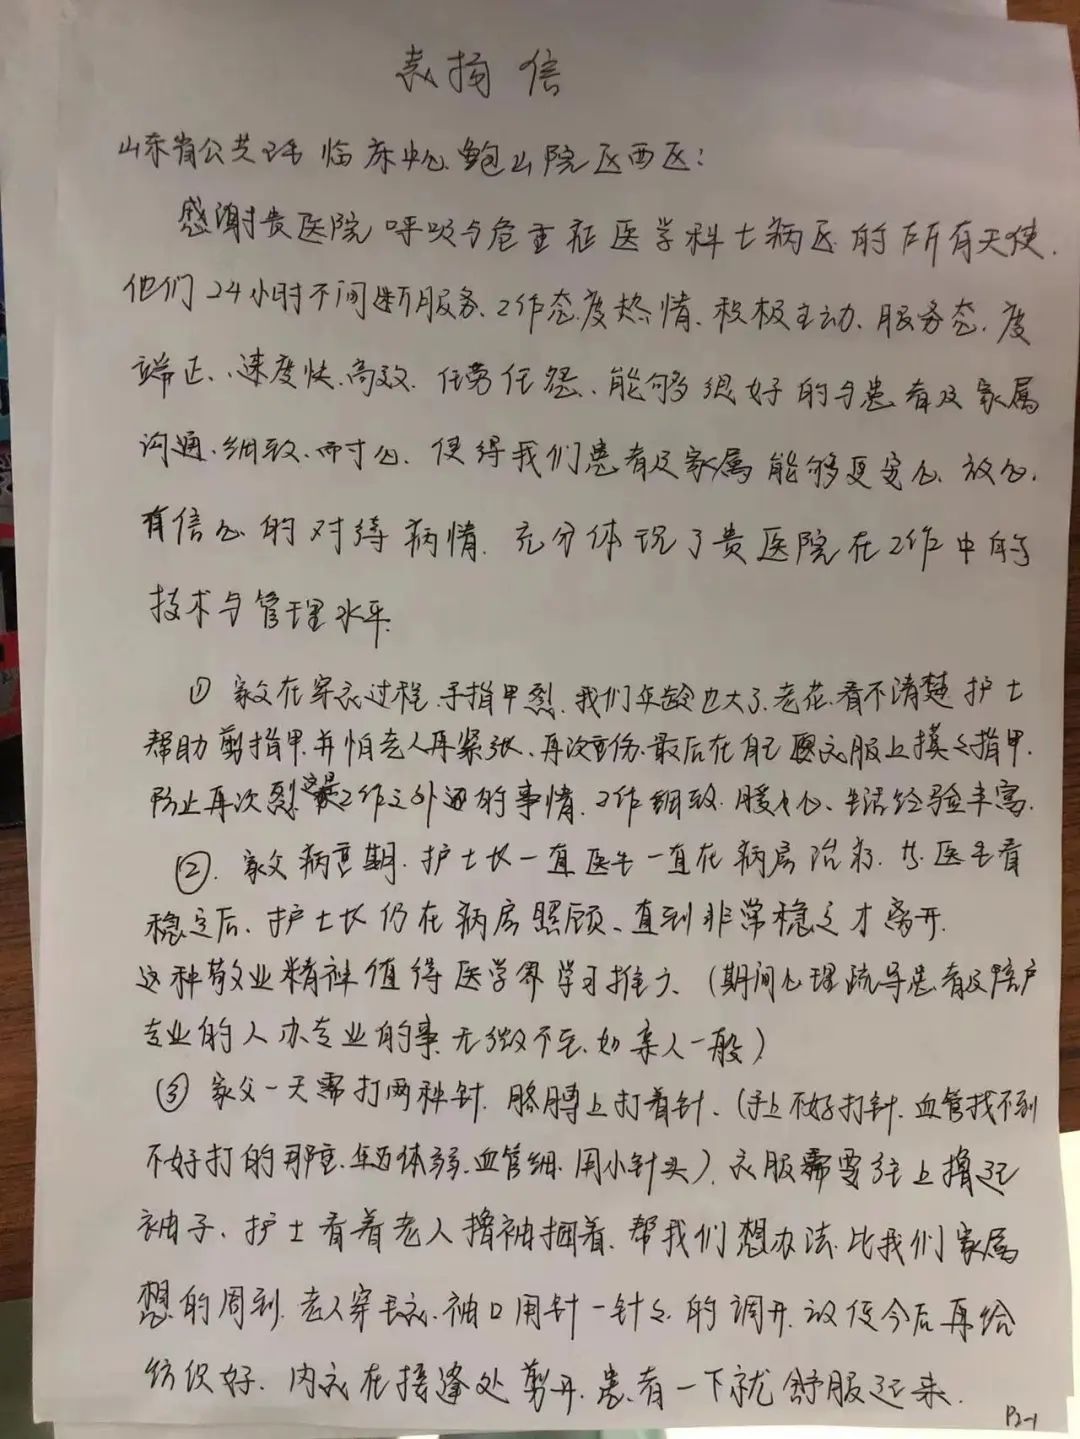 表扬信
山东省公共卫生临床中心鲍山院区西区：
感谢贵医院呼吸与危重症医学科七病区的所有天使.
他们24小时不间断服务、工作态度热情、积极主动、服务态度
端正、速度快、高效、任劳任怨、能够很好的与患者及家属
沟通、细致、耐心、使得我们患者及家属能够更安心、放心、
有信心的对待病情、充分体现了贵医院在工作中的
技术与管理水平.
① 家父在穿衣过程、手指甲裂、我们年龄也大了、老花、看不清楚护士
帮助剪指甲、并怕老人再紧张、再次受伤、最后在自己衣服上摸之指甲、
防止再次裂、这是工作之外的事情、工作细致、暖人心、生活经验丰富.
②. 家父病危期、护士长一直医生一直在病房治疗、当医生看
稳定后、护士长仍在病房照顾、直到非常稳定才离开.
这种敬业精神值得医学界学习推广、(期间心理疏导患者及陪户
专业的人办专业的事、无微不至、如亲人一般)
③ 家父一天需打两种针、胳膊上打着针、(手上不好打针、血管找不到
不好打的那种、体弱、血管细、用小针头)、衣服需要往上撸起
袖子、护士看着老人撸袖捆着、帮我们想办法、比我们家属
想的周到、老人穿毛衣、袖口用针一针之的调开、以便今后再给
纺织好、内衣在接缝处剪开、患者一下就舒服起来.
P2-1